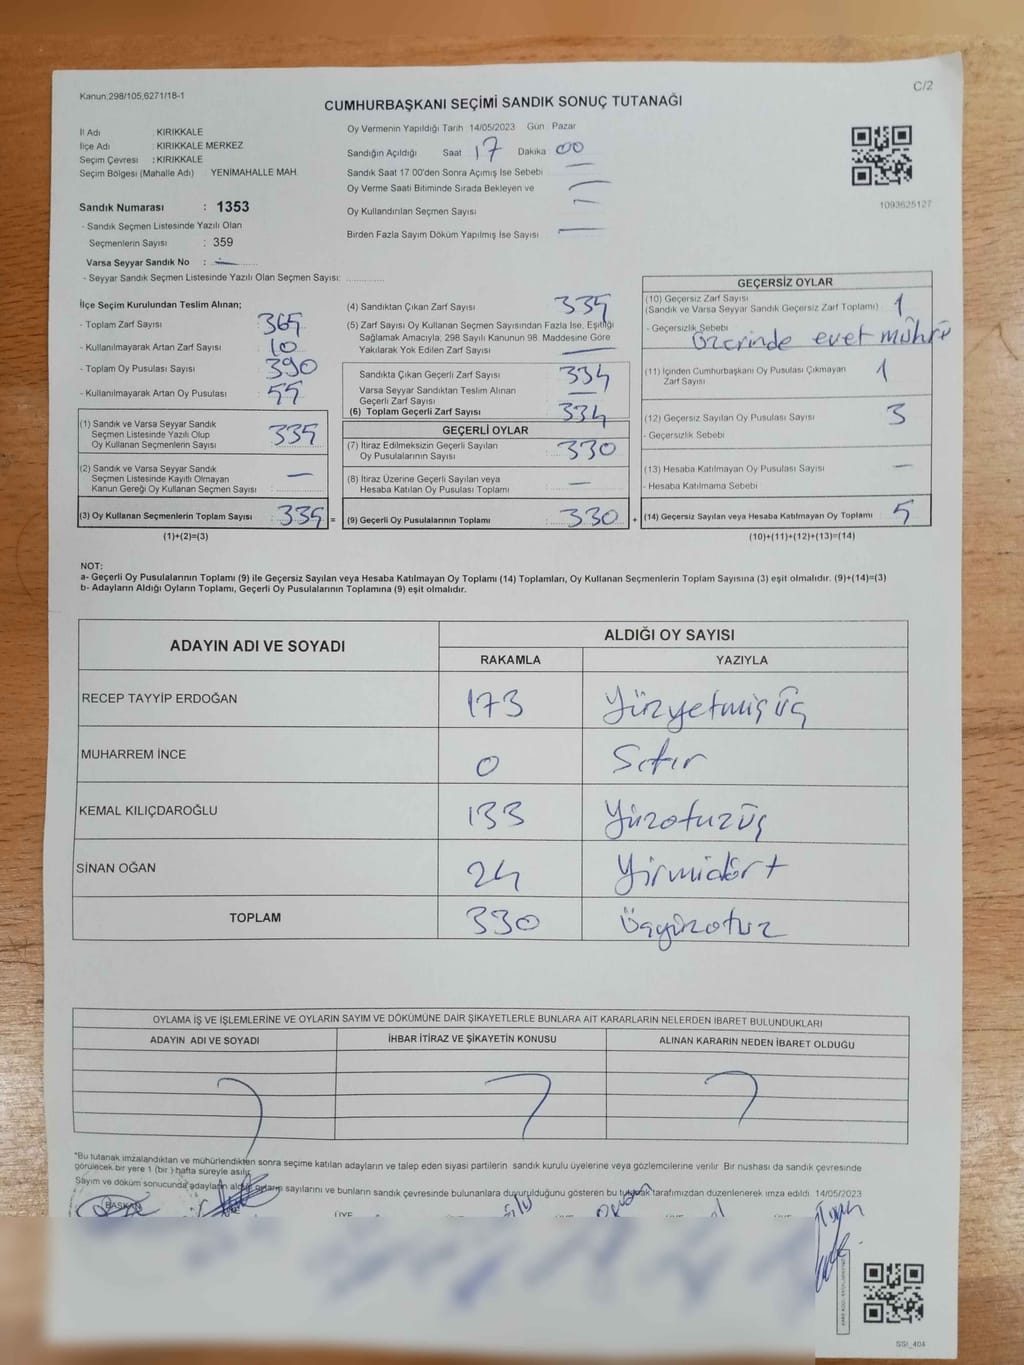 Kanun:298/105,6271/18-1
C/2
CUMHURBAŞKANI SEÇİMİ SANDIK SONUÇ TUTANAĞI
İl Adı : KIRIKKALE
İlçe Adı : KIRIKKALE MERKEZ
Seçim Çevresi : KIRIKKALE
Seçim Bölgesi (Mahalle Adı) YENİMAHALLE MAH.
Sandık Numarası : 1353
- Sandık Seçmen Listesinde Yazılı Olan
Seçmenlerin Sayısı : 359
Varsa Seyyar Sandık No : —
- Seyyar Sandık Seçmen Listesinde Yazılı Olan Seçmen Sayısı:
Oy Vermenin Yapıldığı Tarih 14/05/2023 Gün Pazar
Sandığın Açıldığı Saat 17 Dakika 00
Sandık Saat 17 00'den Sonra Açımış İse Sebebi —
Oy Verme Saati Bitiminde Sırada Bekleyen ve —
Oy Kullandırılan Seçmen Sayısı —
Birden Fazla Sayım Döküm Yapılmış İse Sayısı —
1093625127
İlçe Seçim Kurulundan Teslim Alınan;
- Toplam Zarf Sayısı 365
- Kullanılmayarak Artan Zarf Sayısı 10
- Toplam Oy Pusulası Sayısı 390
- Kullanılmayarak Artan Oy Pusulası 55
(1) Sandık ve Varsa Seyyar Sandık
Seçmen Listesinde Yazılı Olup
Oy Kullanan Seçmenlerin Sayısı 335
(2) Sandık ve Varsa Seyyar Sandık
Seçmen Listesinde Kayıtlı Olmayan
Kanun Gereği Oy Kullanan Seçmen Sayısı —
(3) Oy Kullanan Seçmenlerin Toplam Sayısı 335 =
(1)+(2)=(3)
(4) Sandıktan Çıkan Zarf Sayısı 335
(5) Zarf Sayısı Oy Kullanan Seçmen Sayısından Fazla İse, Eşitliği
Sağlamak Amacıyla; 298 Sayılı Kanunun 98. Maddesine Göre
Yakılarak Yok Edilen Zarf Sayısı —
Sandıkta Çıkan Geçerli Zarf Sayısı 334
Varsa Seyyar Sandıktan Teslim Alınan
Geçerli Zarf Sayısı —
(6) Toplam Geçerli Zarf Sayısı 334
GEÇERLİ OYLAR
(7) İtiraz Edilmeksizin Geçerli Sayılan
Oy Pusulalarının Sayısı 330
(8) İtiraz Üzerine Geçerli Sayılan veya
Hesaba Katılan Oy Pusulası Toplamı —
(9) Geçerli Oy Pusulalarının Toplamı 330 +
GEÇERSİZ OYLAR
(10) Geçersiz Zarf Sayısı
(Sandık ve Varsa Seyyar Sandık Geçersiz Zarf Toplamı) 1
- Geçersizlik Sebebi
üzerinde evet mührü
(11) İçinden Cumhurbaşkanı Oy Pusulası Çıkmayan
Zarf Sayısı 1
(12) Geçersiz Sayılan Oy Pusulası Sayısı 3
- Geçersizlik Sebebi
(13) Hesaba Katılmayan Oy Pusulası Sayısı —
- Hesaba Katılmama Sebebi
(14) Geçersiz Sayılan veya Hesaba Katılmayan Oy Toplamı 5
(10)+(11)+(12)+(13)=(14)
NOT:
a- Geçerli Oy Pusulalarının Toplamı (9) ile Geçersiz Sayılan veya Hesaba Katılmayan Oy Toplamı (14) Toplamları, Oy Kullanan Seçmenlerin Toplam Sayısına (3) eşit olmalıdır. (9)+(14)=(3)
b- Adayların Aldığı Oyların Toplamı, Geçerli Oy Pusulalarının Toplamına (9) eşit olmalıdır.
ADAYIN ADI VE SOYADI
ALDIĞI OY SAYISI
RAKAMLA YAZIYLA
RECEP TAYYİP ERDOĞAN 173 Yüzyetmiş üç
MUHARREM İNCE 0 Sıfır
KEMAL KILIÇDAROĞLU 133 Yüzotuzüç
SİNAN OĞAN 24 Yirmidört
TOPLAM 330 Üçyüzotuz
OYLAMA İŞ VE İŞLEMLERİNE VE OYLARIN SAYIM VE DÖKÜMÜNE DAİR ŞİKAYETLERLE BUNLARA AİT KARARLARIN NELERDEN İBARET BULUNDUKLARI
ADAYIN ADI VE SOYADI İHBAR İTİRAZ VE ŞİKAYETİN KONUSU ALINAN KARARIN NEDEN İBARET OLDUĞU
*Bu tutanak imzalandıktan ve mühürlendikten sonra seçime katılan adayların ve talep eden siyasi partilerin sandık kurulu üyelerine veya gözlemcilerine verilir. Bir nushası da sandık çevresinde
görülecek bir yere 1 (bir) hafta süreyle asılır.
Sayım ve döküm sonucunda adayların aldığı oyların sayılarını ve bunların sandık çevresinde bulunanlara duyurulduğunu gösteren bu tutanak tarafımızdan düzenlenerek imza edildi. 14/05/2023
BAŞKAN
ÜYE
SSI_404